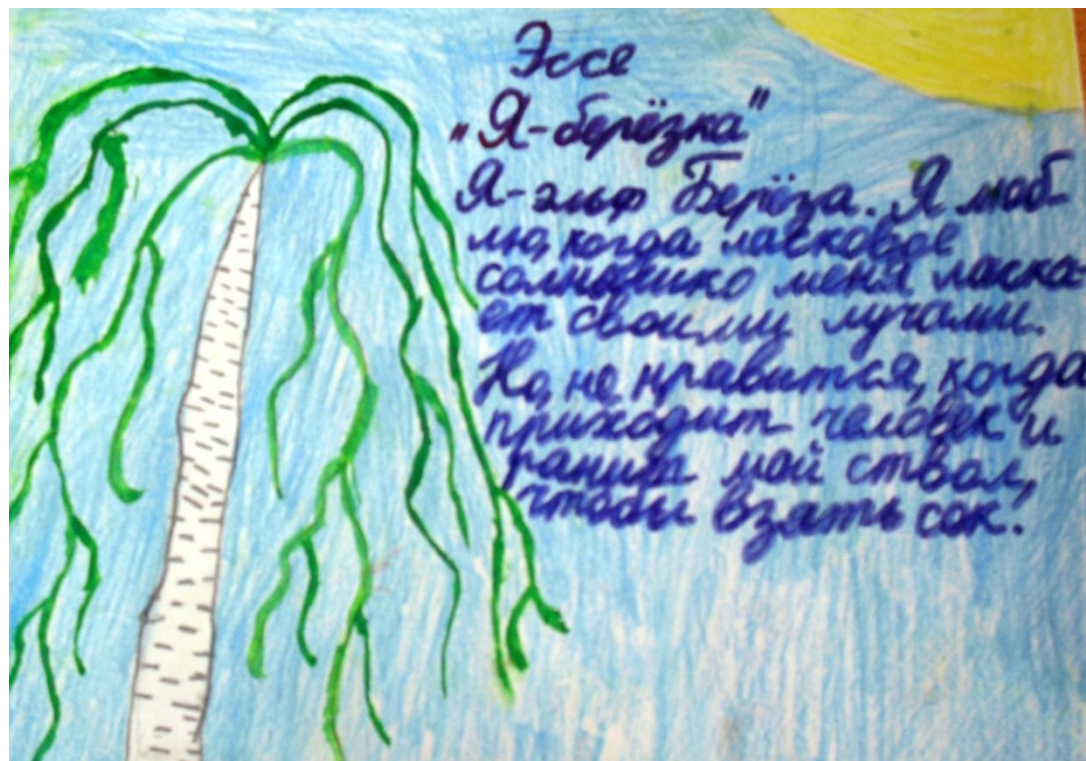 Эссе
"Я-берёзка"
Я-эльф Берёза. Я люб-
лю, когда ласковое
солнышко меня ласка-
ет своими лучами.
Но, не нравится, когда
приходит человек и
ранит мой ствол,
чтобы взять сок.